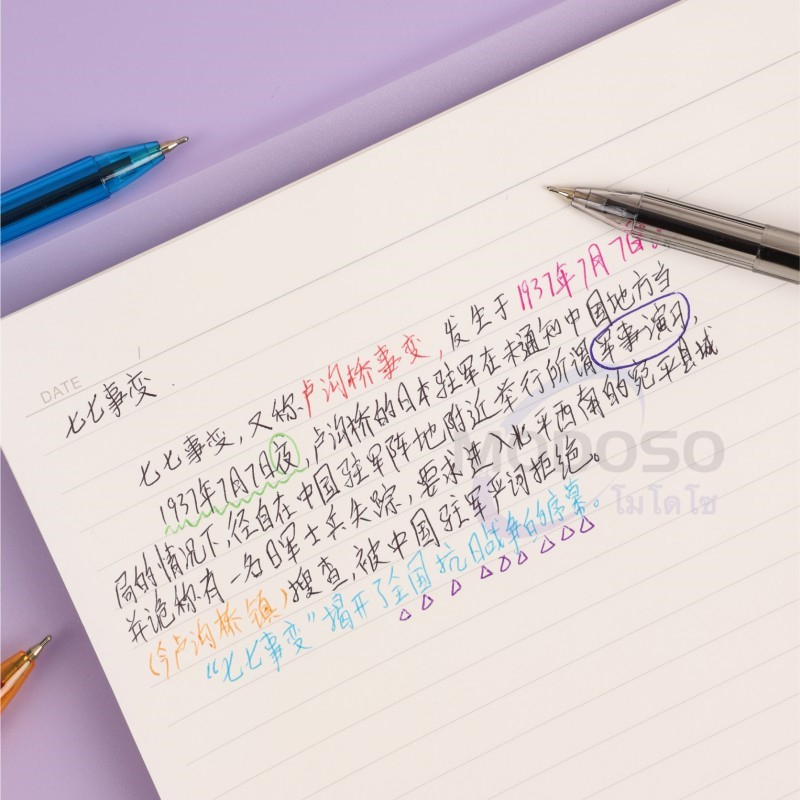 DATE
七七事变
七七事变,又称卢沟桥事变,发生于1937年7月7日。
1937年7月7日夜,卢沟桥的日本驻军在未通知中国地方当
局的情况下,径自在中国驻军阵地附近举行所谓军事演习,
并诡称有一名日军士兵失踪,要求进入北平西南的宛平县城
(今卢沟桥镇)搜查,被中国驻军严词拒绝。
“七七事变”揭开了全国抗日战争的序幕。
MODOSO
โมโดโซ